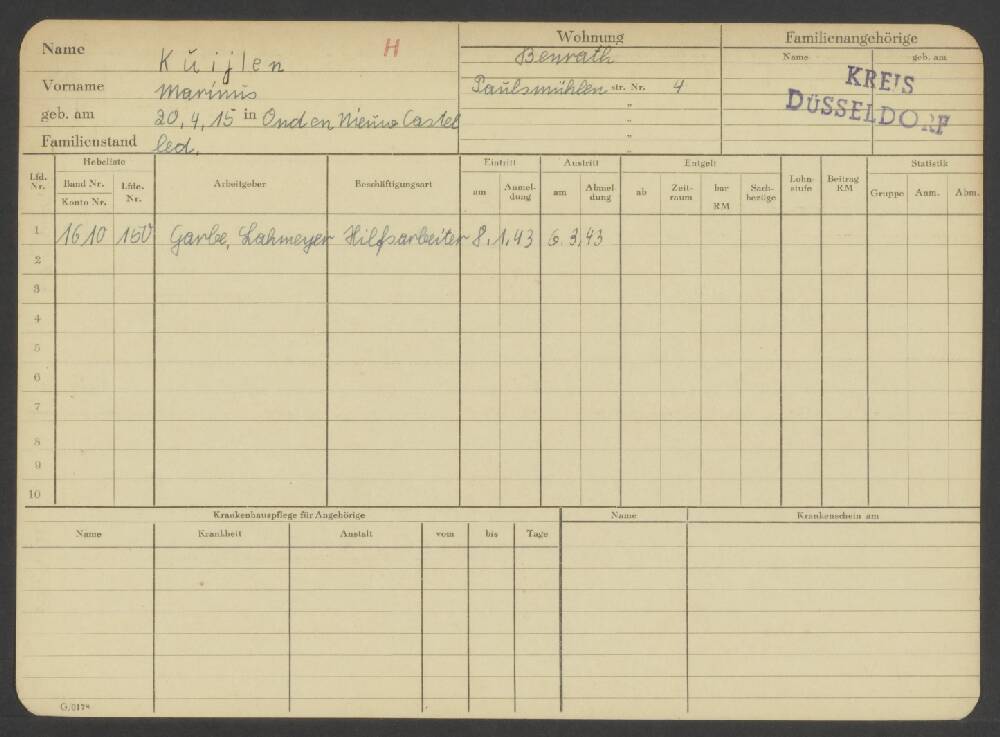 Name Kuijlen H
Vorname Marinus
geb. am 20.4.15 in Oud en Nieuw Castel
Familienstand led.
Wohnung
Benrath
Paulsmühlen str. Nr. 4
"
"
"
Familienangehörige
Name geb. am
KREIS
DÜSSELDORF
Lfd. Nr. Hebeliste Arbeitgeber Beschäftigungsart Eintritt Austritt Entgelt Lohn-stufe Beitrag RM Statistik
Band Nr. Konto Nr. Lfde. Nr. am Anmel-dung am Abmel-dung ab Zeit-raum bar RM Sach-bezüge Gruppe Anm. Abm.
1 1610 150 Garbe, Lahmeyer Hilfsarbeiter 8.1.43 6.3.43
2
3
4
5
6
7
8
9
10
Krankenhauspflege für Angehörige
Name Krankheit Anstalt vom bis Tage
Name Krankenschein am
G/0178